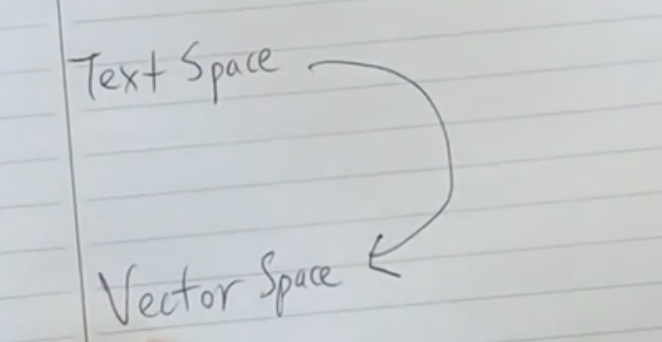 Text Space
Vector Space